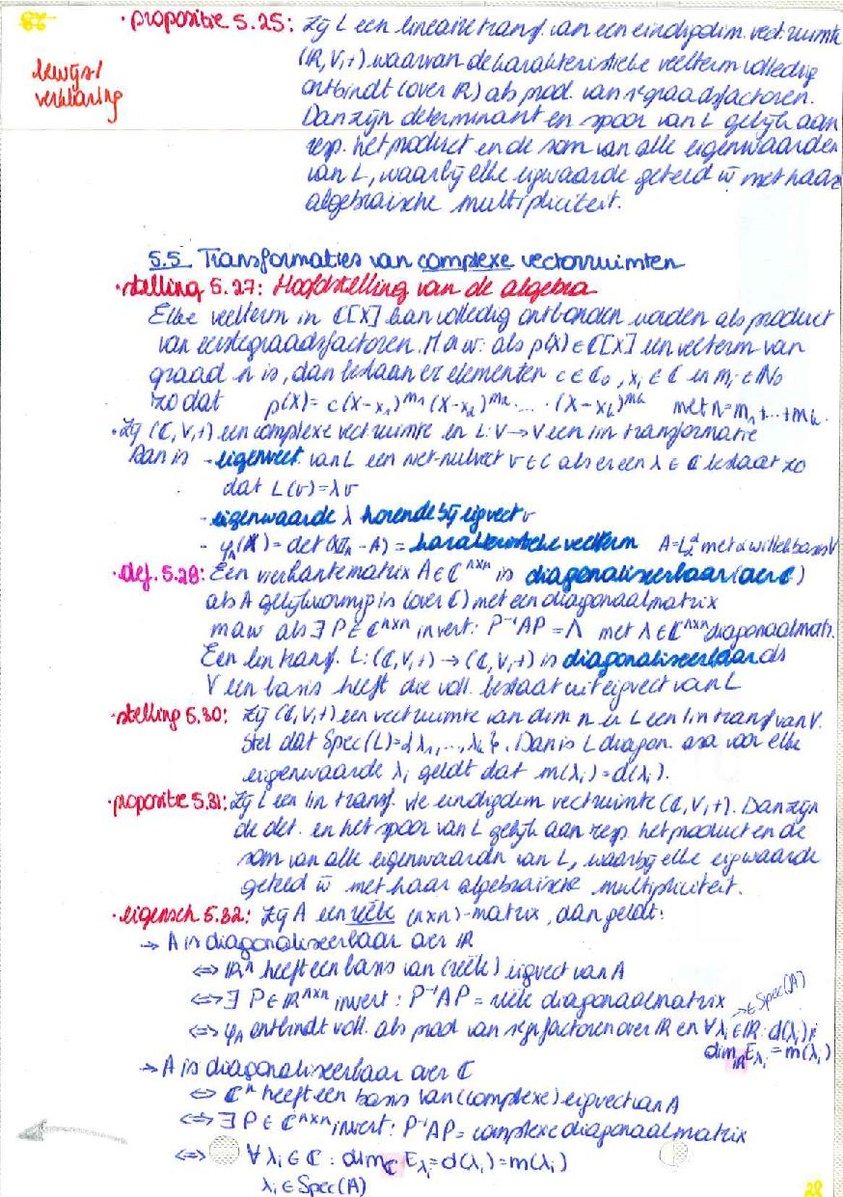 bewijs!
verklaring
• propositie 5.25: Zij L een lineaire transf. van een eindigdim. vect.ruimte
(ℝ,V,+) waarvan de karakteristieke veelterm volledig
ontbindt (over ℝ) als prod. van 1egraadsfactoren.
Dan zijn determinant en spoor van L gelijk aan
resp. het product en de som van alle eigenwaarden
van L, waarbij elke eigwaarde geteld w met haar
algebraïsche multipliciteit.
5.5 Transformaties van complexe vectorruimten
• stelling 5.27: Hoofdstelling van de algebra
Elke veelterm in ℂ[X] kan volledig ontbonden worden als product
van eerstegraadsfactoren. M a w: als p(X) ∈ ℂ[X] een veelterm van
graad n is, dan bestaan er elementen c ∈ ℂ₀, xᵢ ∈ ℂ en mᵢ ∈ ℕ₀
zo dat p(X) = c(X-x₁)^m₁ (X-x₂)^m₂ ... · (X-xₖ)^mₖ met n = m₁+...+mₖ.
• Zij (ℂ,V,+) een complexe vect.ruimte en L: V → V een lin transformatie
Dan is - eigenvect. van L een niet-nulvect v ∈ C als er een λ ∈ ℂ bestaat zo
dat L(v) = λv
- eigenwaarde λ horende bij eigvect v
- φ_A(X) = det(XIₙ - A) = karakteristieke veelterm A = L_α^α met α willek basis V
• def. 5.28: Een vierkante matrix A ∈ ℂⁿˣⁿ is diagonaliseerbaar (over ℂ)
als A gelijkvormig is (over ℂ) met een diagonaalmatrix
maw als ∃ P ∈ ℂⁿˣⁿ invert: P⁻¹AP = Λ met Λ ∈ ℂⁿˣⁿ diagonaalmatr.
Een lin transf. L: (ℂ,V,+) → (ℂ,V,+) is diagonaliseerbaar als
V een basis heeft die voll. bestaat uit eigvect van L
• stelling 5.30: Zij (ℂ,V,+) een vect.ruimte van dim n en L een lin transf van V.
Stel dat Spec(L) = {λ₁,...,λₖ}. Dan is L diagon. asa voor elke
eigenwaarde λᵢ geldt dat m(λᵢ) = d(λᵢ).
• propositie 5.31: Zij L een lin transf. ve eindigdim vectruimte (ℂ,V,+). Dan zijn
de det. en het spoor van L gelijk aan resp. het product en de
som van alle eigenwaarden van L, waarbij elke eigwaarde
geteld w met haar algebraïsche multipliciteit.
• eigensch 5.32: Zij A een reële (n×n)-matrix, dan geldt:
→ A is diagonaliseerbaar over ℝ
⇔ ℝⁿ heeft een basis van (reële) eigvect van A
⇔ ∃ P ∈ ℝⁿˣⁿ invert: P⁻¹AP = reële diagonaalmatrix
→ ∈ Spec(A)
⇔ φ_A ontbindt voll. als prod van factoren over ℝ en ∀λᵢ ∈ ℝ: d(λᵢ)=
dim_ℝ E_λᵢ = m(λᵢ)
→ A is diagonaliseerbaar over ℂ
⇔ ℂⁿ heeft een basis van (complexe) eigvect van A
⇔ ∃ P ∈ ℂⁿˣⁿ invert: P⁻¹AP = complexe diagonaalmatrix
⇔ ∀ λᵢ ∈ ℂ: dim_ℂ E_λᵢ = d(λᵢ) = m(λᵢ)
λᵢ ∈ Spec(A)
28